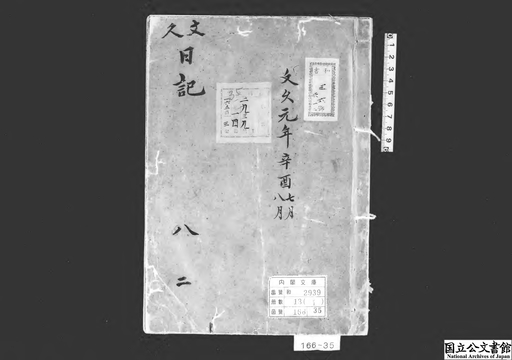 文久
日記
八
二
文久元年辛酉
七月
八月
内閣文庫
番号 和 2939
冊数
函号 166 35
166-35
1 2 3 4 5 6 7 8 9
国立公文書館
National Archives of Japan